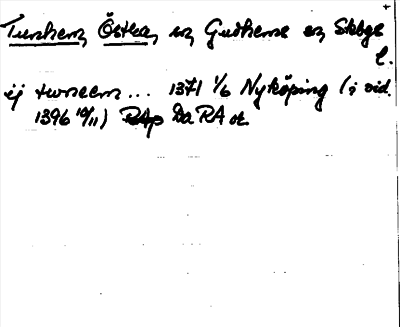 +
Tunhem, Östra, sn Gudhems sn Skbgs
l.
ij twneem... 1371 1/6 Nyköping (i vid.
1396 10/11) RAp Da RA or.